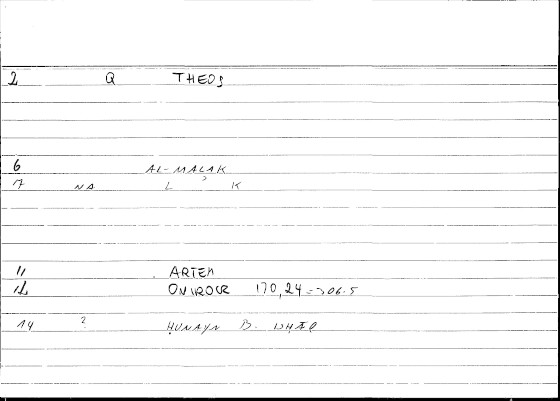 2 Q THEOS
6 AL-MALAK
7 NA L ʾ K
11 ARTEM
12 ONIROCR 170,24 => 06.5
14 ? ḤUNAYN B. ISḤĀQ